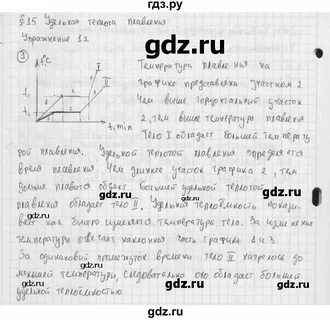 §15 Удельная теплота плавления
Упражнение 12
gdz.ru
1
t,°C
t₁
t₂
t, min
I
II
Температура плавления на
графике представлена участком 2
Чем выше горизонтальный участок
2, тем выше температура плавления
Тело I обладает большей температу
рой плавления. Удельной теплотой плавления определяется
время плавления. Чем длиннее участок графика 2, тем
дольше плавится объект. Большей удельной теплотой
плавления обладает тело II. Удельная теплоёмкость показы-
вает как быстро изменяется температура тела. За изменение
температуры отвечает наклонная часть графика 1 и 3.
За одинаковый промежуток времени тело II нагрелось до
меньшей температуры, следовательно оно обладает большей
удельной теплоёмкостью.
gdz.ru
gdz.ru
gdz.ru
gdz.ru